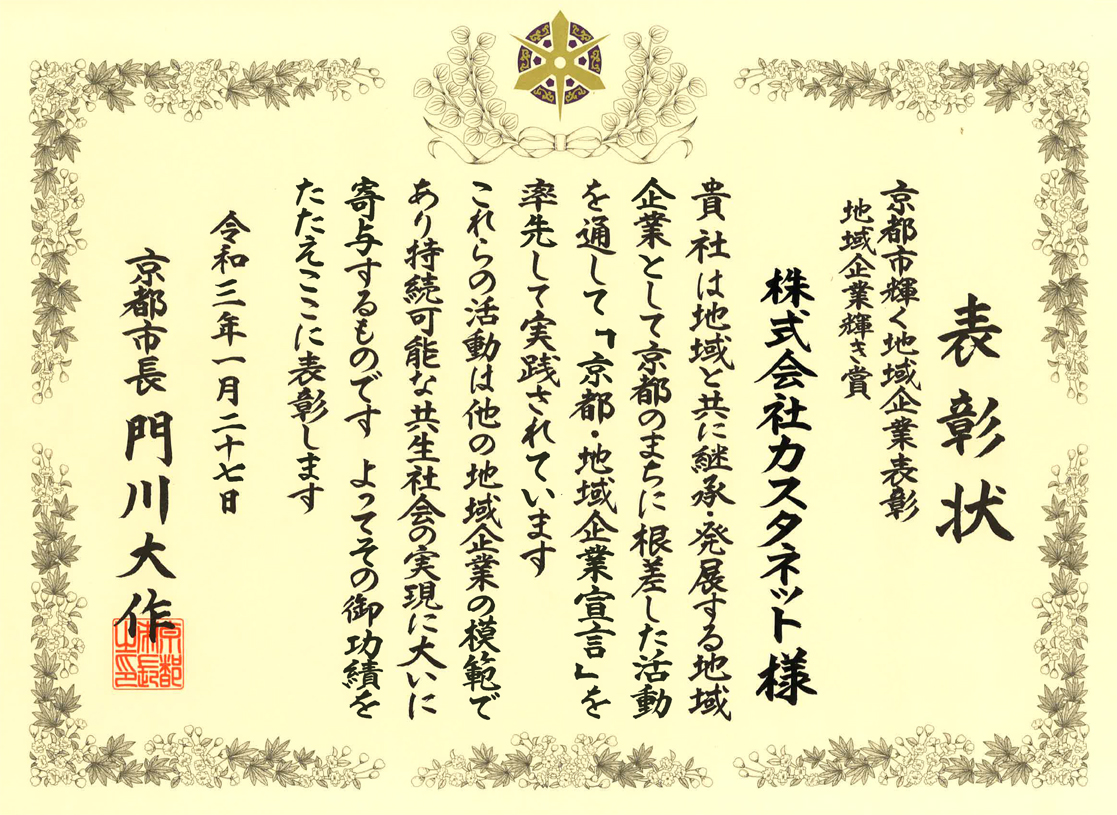 表彰状
京都市輝く地域企業表彰
地域企業輝き賞
株式会社カスタネット様
貴社は地域と共に継承・発展する地域
企業として京都のまちに根差した活動
を通して「京都・地域企業宣言」を
率先して実践されています
これらの活動は他の地域企業の模範で
あり持続可能な共生社会の実現に大いに
寄与するものです よってその御功績を
たたえここに表彰します
令和三年一月二十七日
京都市長 門川大作
京都
市長
之印